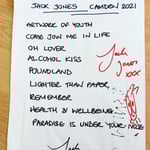 JACK JONES CAMDEN 2021
ARTWORK OF YOUTH
COME JOIN ME IN LIFE
OH LOVER
ALCOHOL KISS
POUNDLAND
LIGHTER THAN PAPER
REMEMBER
HEALTH & WELLBEING
PARADISE IS UNDER YOUR NOSE
Jack
Jones
XXX
Jack